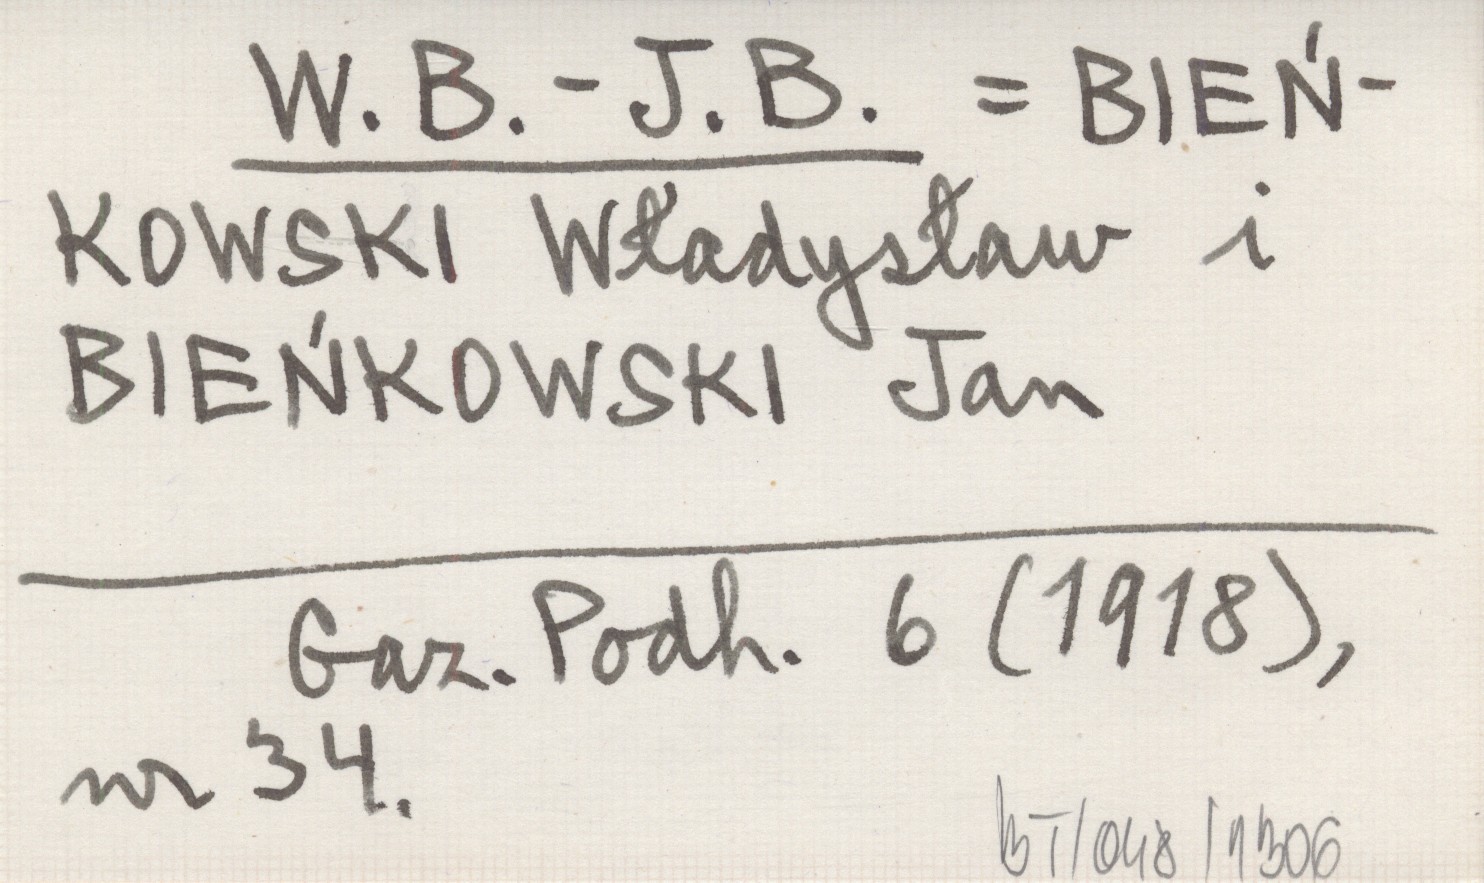 W. B. - J. B. = BIEŃ-
KOWSKI Władysław i
BIEŃKOWSKI Jan
Gaz. Podh. 6 (1918),
nr 34.
BT/048/1306